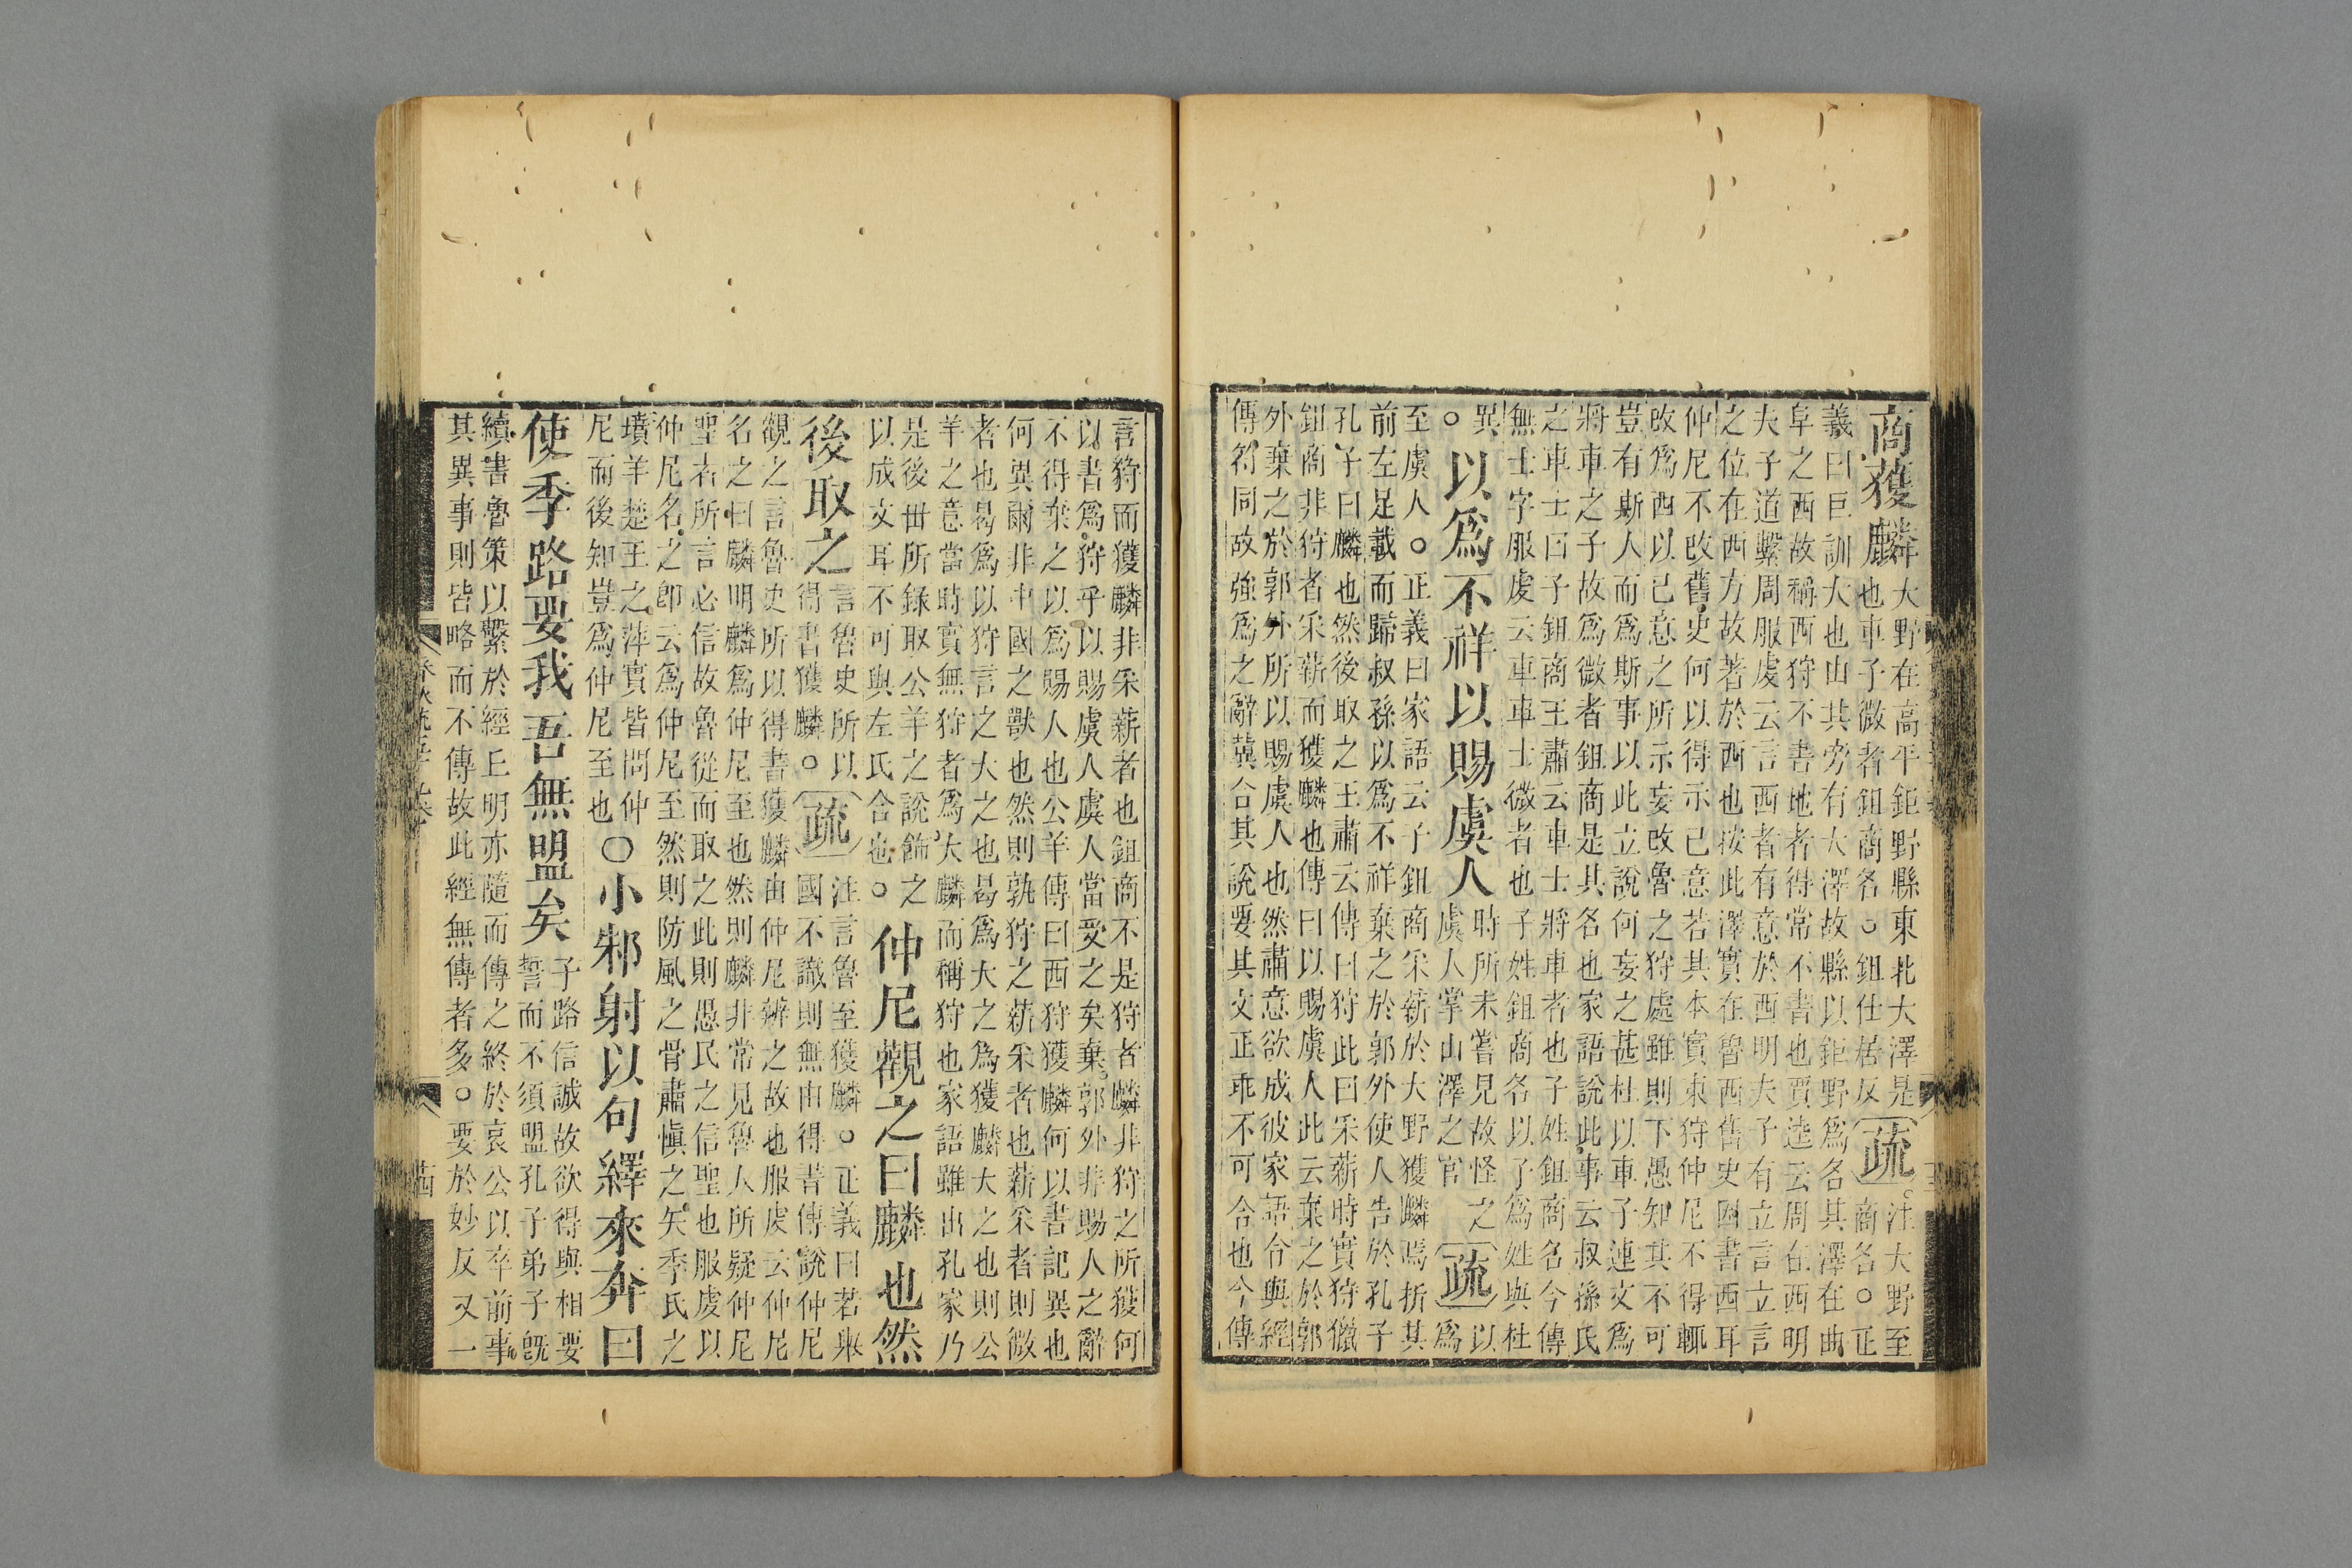 商獲麟大野在高平鉅野縣東北大澤是也車子微者鉏商名。鉏仕居反疏注大野至商名。正
義曰巨訓大也山其旁有大澤故縣以鉅野爲名其澤在曲
阜之西故稱西狩不書地者得常不書也賈逵云周在西明
夫子道繫周服虔云言西者有意於西明夫子有立言立言
之位在西方故著於西也按此澤實在魯西舊史因書西耳
仲尼不改舊史何以得示已意若其本實東狩仲尼不得輒
改爲西以已意之所示妄改魯之狩處雖則下愚知其不可
豈有斯人而爲斯事以此立說何妄之甚杜以車子連文爲
將車之子故爲微者鉏商是其名也家語說此事云叔孫氏
之車士曰子鉏商王肅云車士將車者也子姓鉏商名今傳
無士字服虔云車車士微者也子姓鉏商名以子爲姓與杜
異。以爲不祥以賜虞人時所未嘗見故怪之虞人掌山澤之官疏以爲
至虞人。正義曰家語云子鉏商采薪於大野獲麟焉折其
前左足載而歸叔孫以爲不祥棄之於郭外使人告於孔子
孔子曰麟也然後取之王肅云傳曰狩此曰采薪時實狩獵
鉏商非狩者采薪而獲麟也傳曰以賜虞人此云棄之於郭
外棄之於郭外所以賜虞人也然肅意欲成彼家語合與經
傳符同故強爲之辭冀合其說要其文正乖不可合也今傳
言狩而獲麟非采薪者也鉏商不是狩者麟非狩之所獲何
以書爲狩乎以賜虞人虞人當受之矣棄郭外非賜人之辭
不得棄之以爲賜人也公羊傳曰西狩獲麟何以書記異也
何異爾非中國之獸也然則孰狩之薪采者也薪采者則微
者也曷爲以狩言之大之也曷爲大之爲獲麟大之也則公
羊之意當時實無狩者爲大麟而稱狩也家語雖出孔家乃
是後世所錄取公羊之說飾之
以成文耳不可與左氏合也。仲尼觀之曰麟也然
後取之言魯史所以得書獲麟。疏注言魯至獲麟。正義曰若舉國不識則無由得書傳說仲尼
觀之言魯史所以得書獲麟由仲尼辨之故也服虔云仲尼
名之曰麟明麟爲仲尼至也然則麟非常見魯人所疑仲尼
聖者所言必信故魯從而取之此則愚民之信聖也服虔以
仲尼名之卽云爲仲尼至然則防風之骨肅慎之矢季氏之
墳羊楚王之萍實皆問仲
尼而後知豈爲仲尼至也〇小邾射以句繹來奔曰
使季路要我吾無盟矣子路信誠故欲得與相要誓而不須盟孔子弟子旣
續書魯策以繫於經丘明亦隨而傳之終於哀公以卒前事
其異事則皆略而不傳故此經無傳者多。要於妙反又一